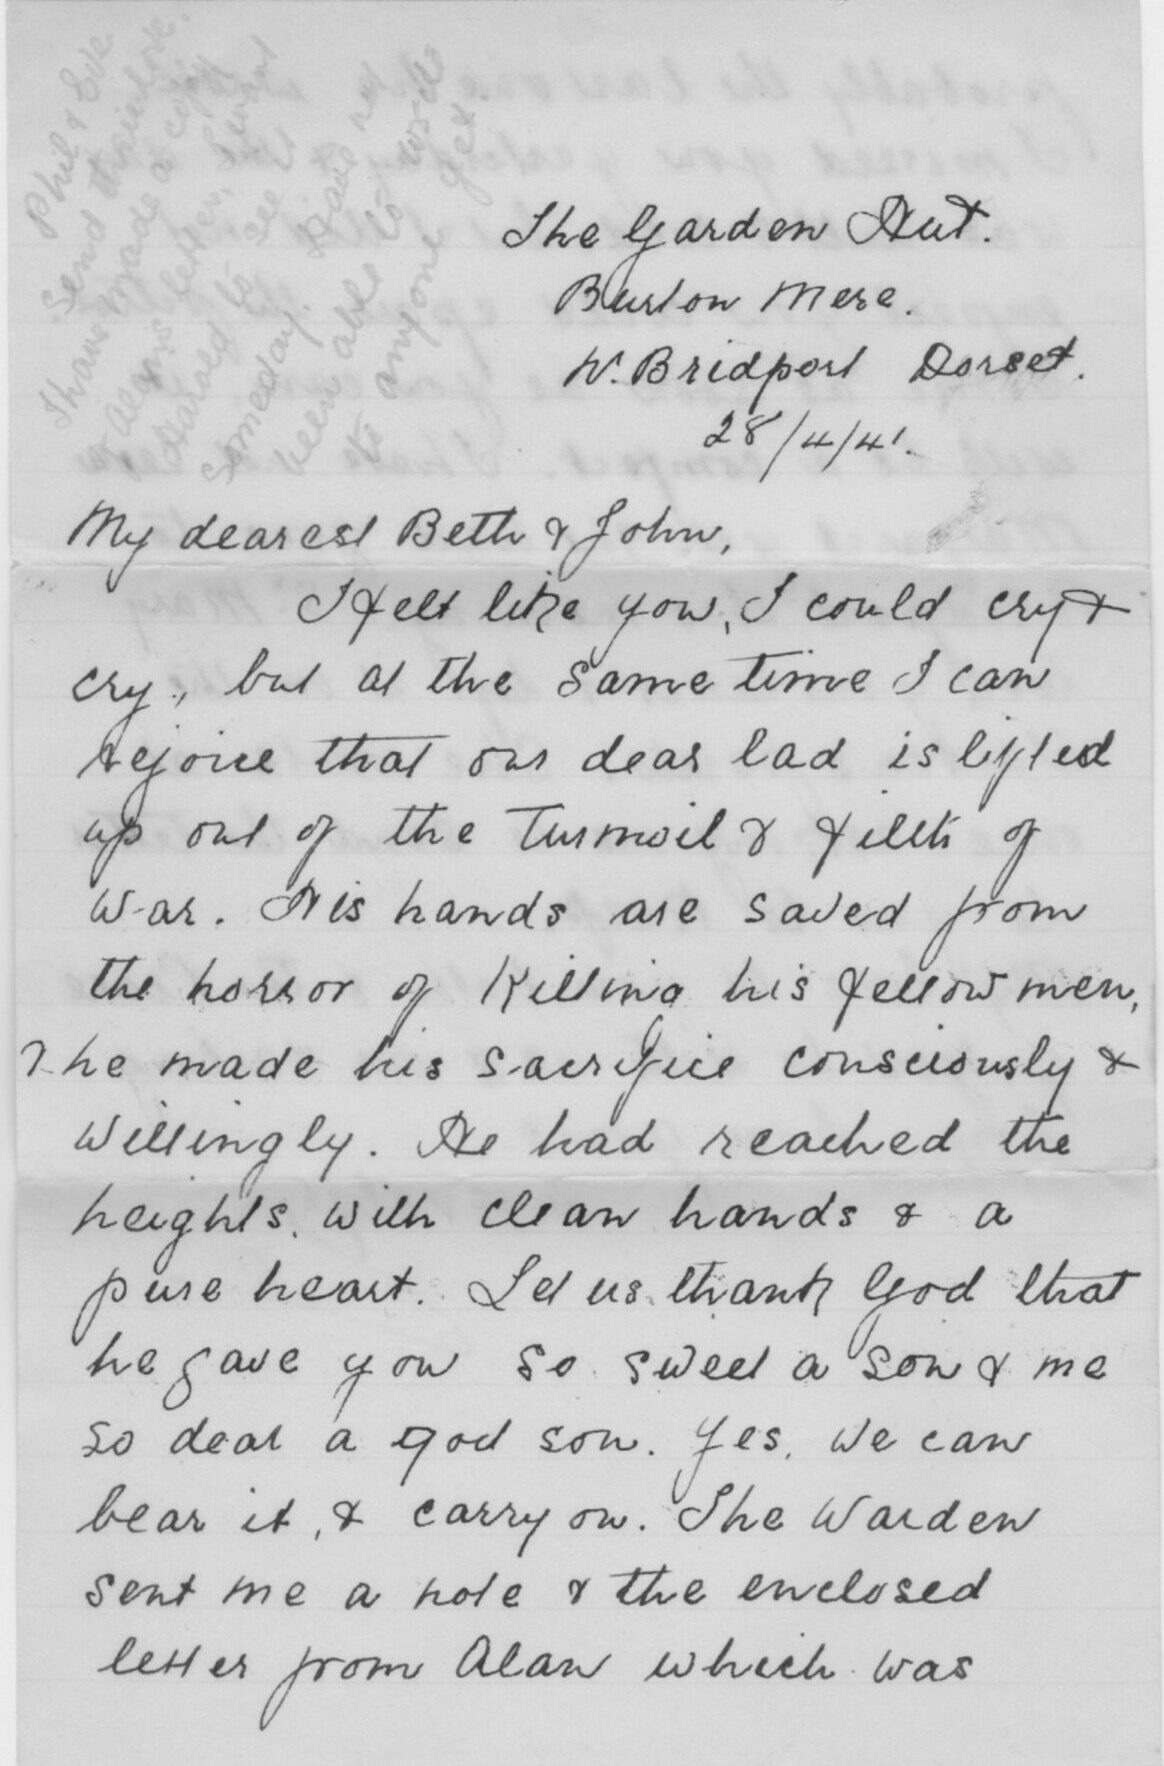 Phil & Eve
send their love.
I have made a copy
of Alan's letter, want
Harold to see it
someday. Have not
been able to write
to anyone yet.
The Garden Hut.
Burton Mere.
Nr. Bridport Dorset.
28/4/41.
My dearest Beth & John,
I felt like you, I could cry &
cry, but at the same time I can
rejoice that our dear lad is lifted
up out of the turmoil & filth of
war. His hands are saved from
the horror of killing his fellow men,
& he made his sacrifice consciously &
willingly. He had reached the
heights. with clean hands & a
pure heart. Let us thank God that
he gave you so sweet a son & me
so dear a god son. Yes, we can
bear it, & carry on. The Warden
sent me a note & the enclosed
letter from Alan which was